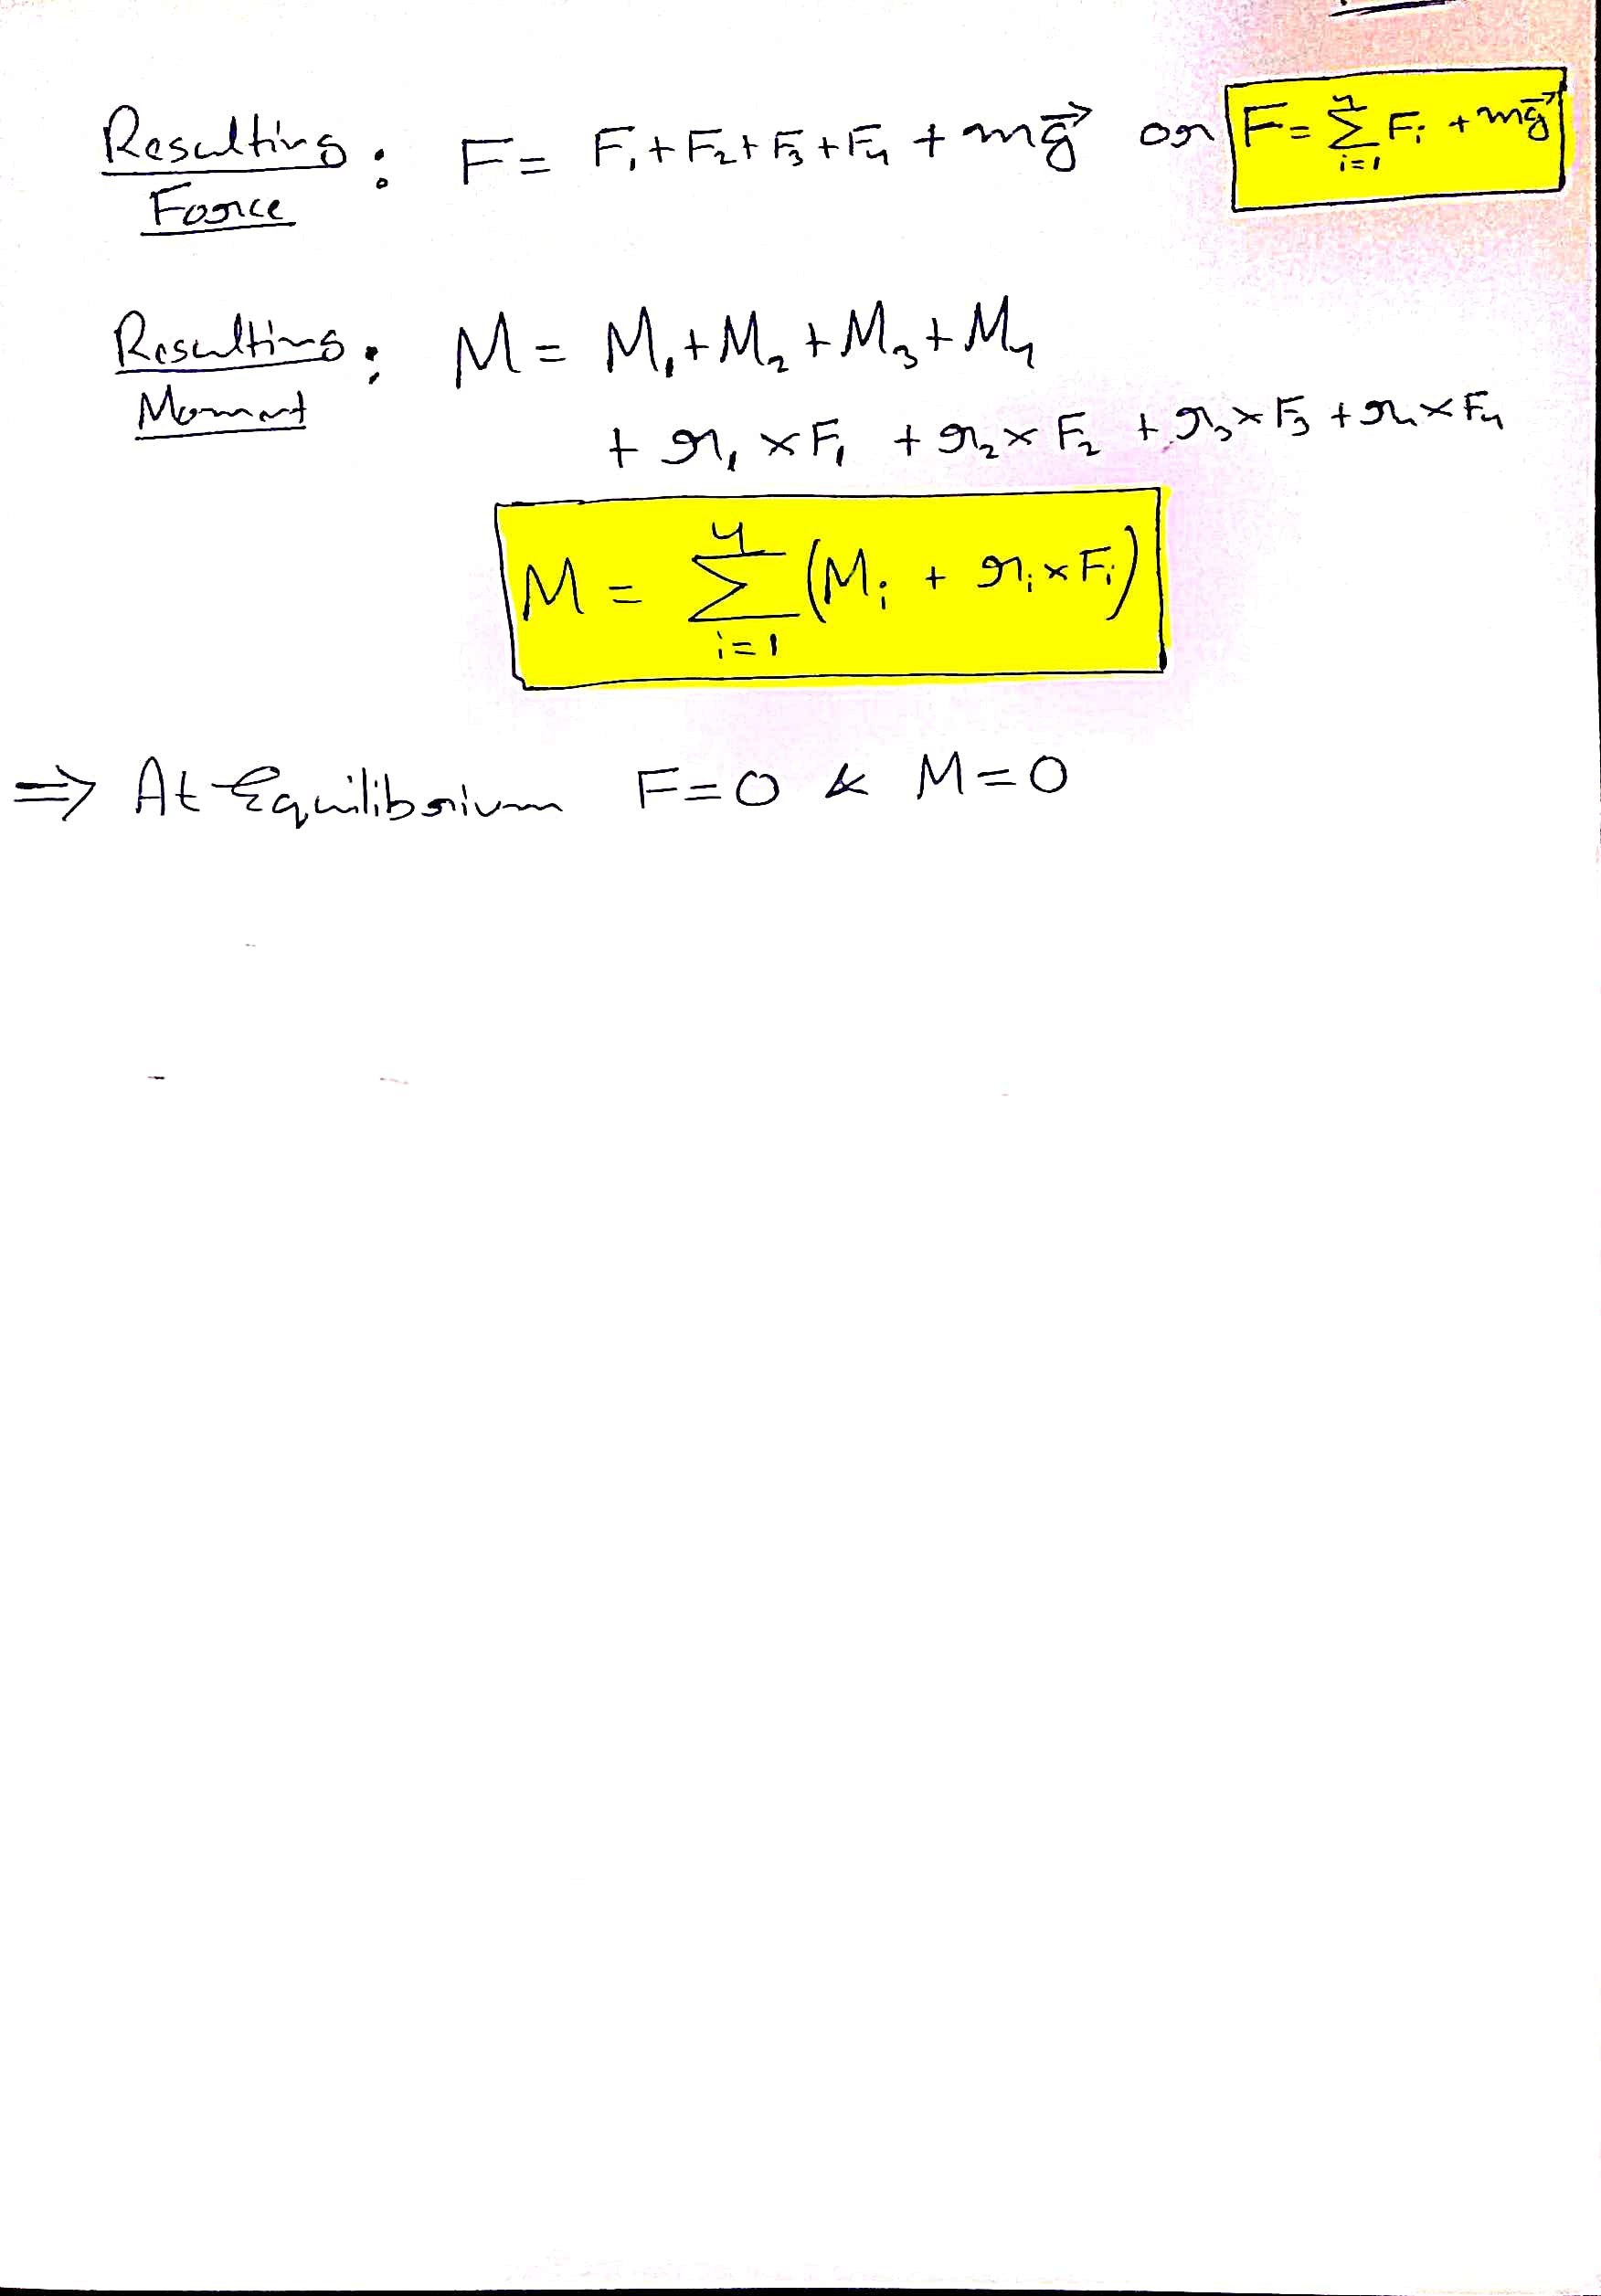 Resulting Force : F = F₁ + F₂ + F₃ + F₄ + mg⃗ or F = Σ⁴ᵢ₌₁ Fᵢ + mg⃗
Resulting Moment : M = M₁ + M₂ + M₃ + M₄
+ r₁ × F₁ + r₂ × F₂ + r₃ × F₃ + r₄ × F₄
M = Σ⁴ᵢ₌₁ (Mᵢ + rᵢ × Fᵢ)
⇒ At Equilibrium F = 0 & M = 0